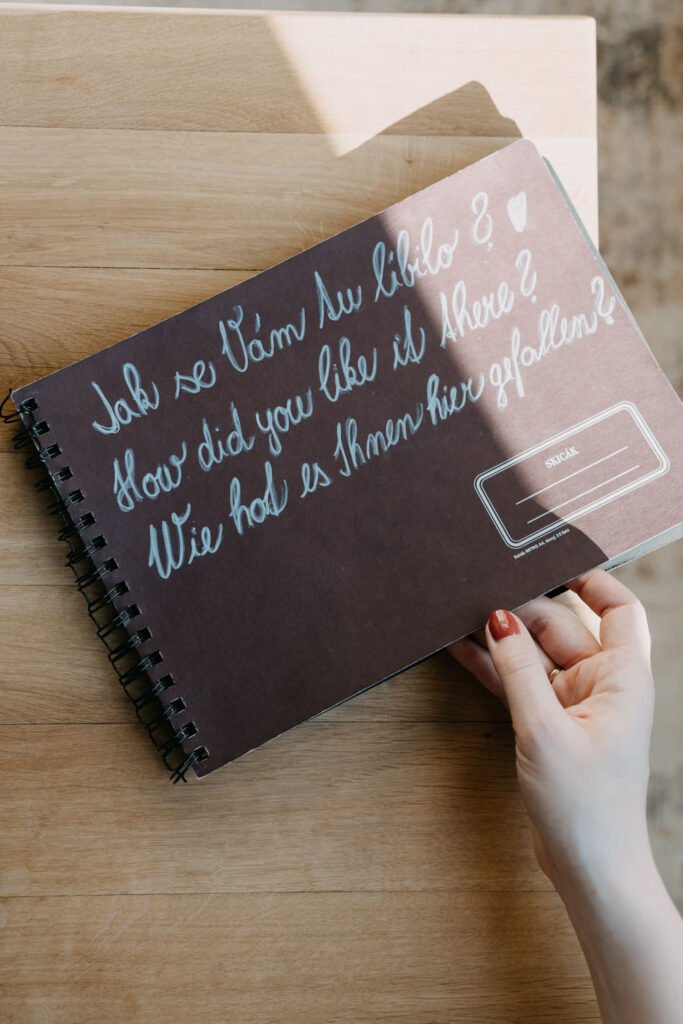 Jak se Vám tu líbilo?
How did you like it there?
Wie hat es Ihnen hier gefallen?
SKICÁK